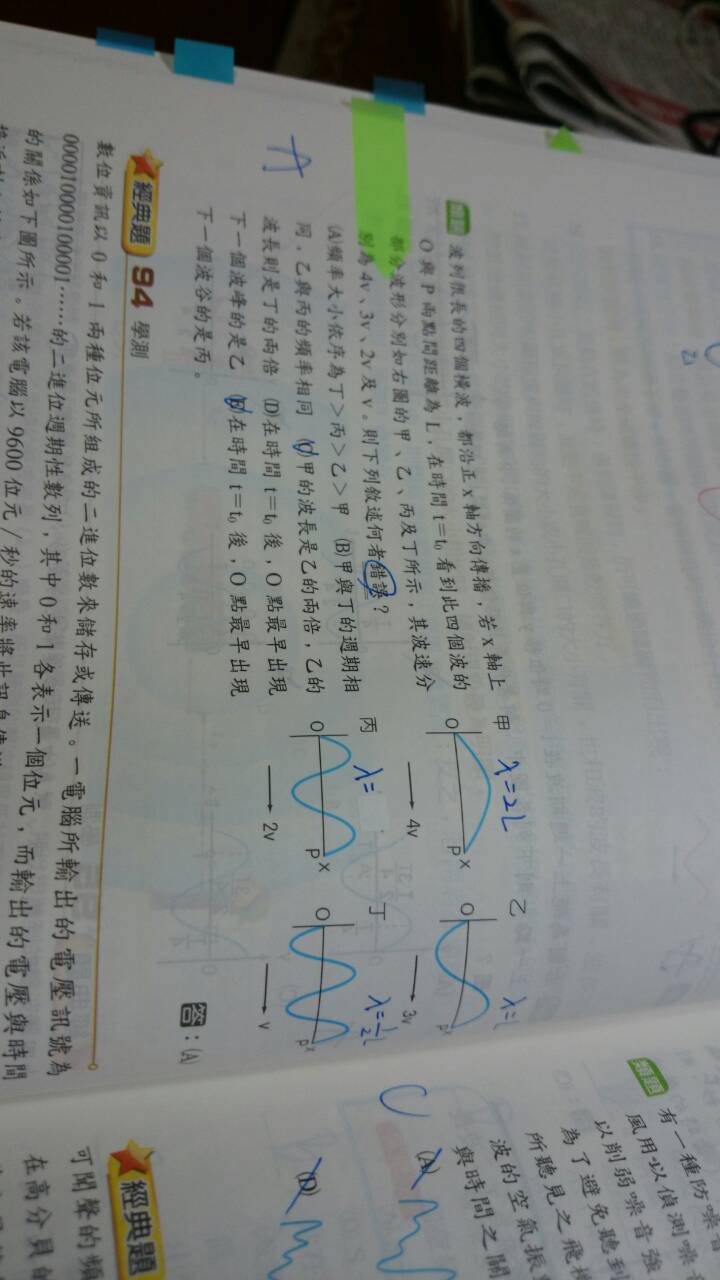 類題 波列很長的四個橫波，都沿正 x 軸方向傳播，若 x 軸上
O 與 P 兩點間距離為 L，在時間 t＝t₀ 看到此四個波的
部分波形分別如右圖的甲、乙、丙及丁所示，其波速分
別為 4v、3v、2v 及 v。則下列敘述何者錯誤？
(A)頻率大小依序為丁＞丙＞乙＞甲 (B)甲與丁的週期相
同，乙與丙的頻率相同 (C)甲的波長是乙的兩倍，乙的
波長則是丁的兩倍 (D)在時間 t＝t₀ 後，O 點最早出現
下一個波峰的是乙 (E)在時間 t＝t₀ 後，O 點最早出現
下一個波谷的是丙。
A
甲 λ=2L
O P x
4v
乙 λ=L
O P x
3v
丙 λ=
O P x
2v
丁 λ=½L
O P x
v
答：(A)
經典題 94 學測
數位資訊以 0 和 1 兩種位元所組成的二進位數來儲存或傳送。一電腦所輸出的電壓訊號為
000010000100001……的二進位週期性數列，其中 0 和 1 各表示一個位元，而輸出的電壓與時間
的關係如下圖所示。若該電腦以 9600 位元／秒的速率將此訊息傳
類題
有一種防噪音
風用以偵測噪
以削弱噪音強
為了避免聽到
所聽見之飛
波的空氣振
與時間之關
C
(A)
(D)
經典題
可聞聲的頻
在高分貝的